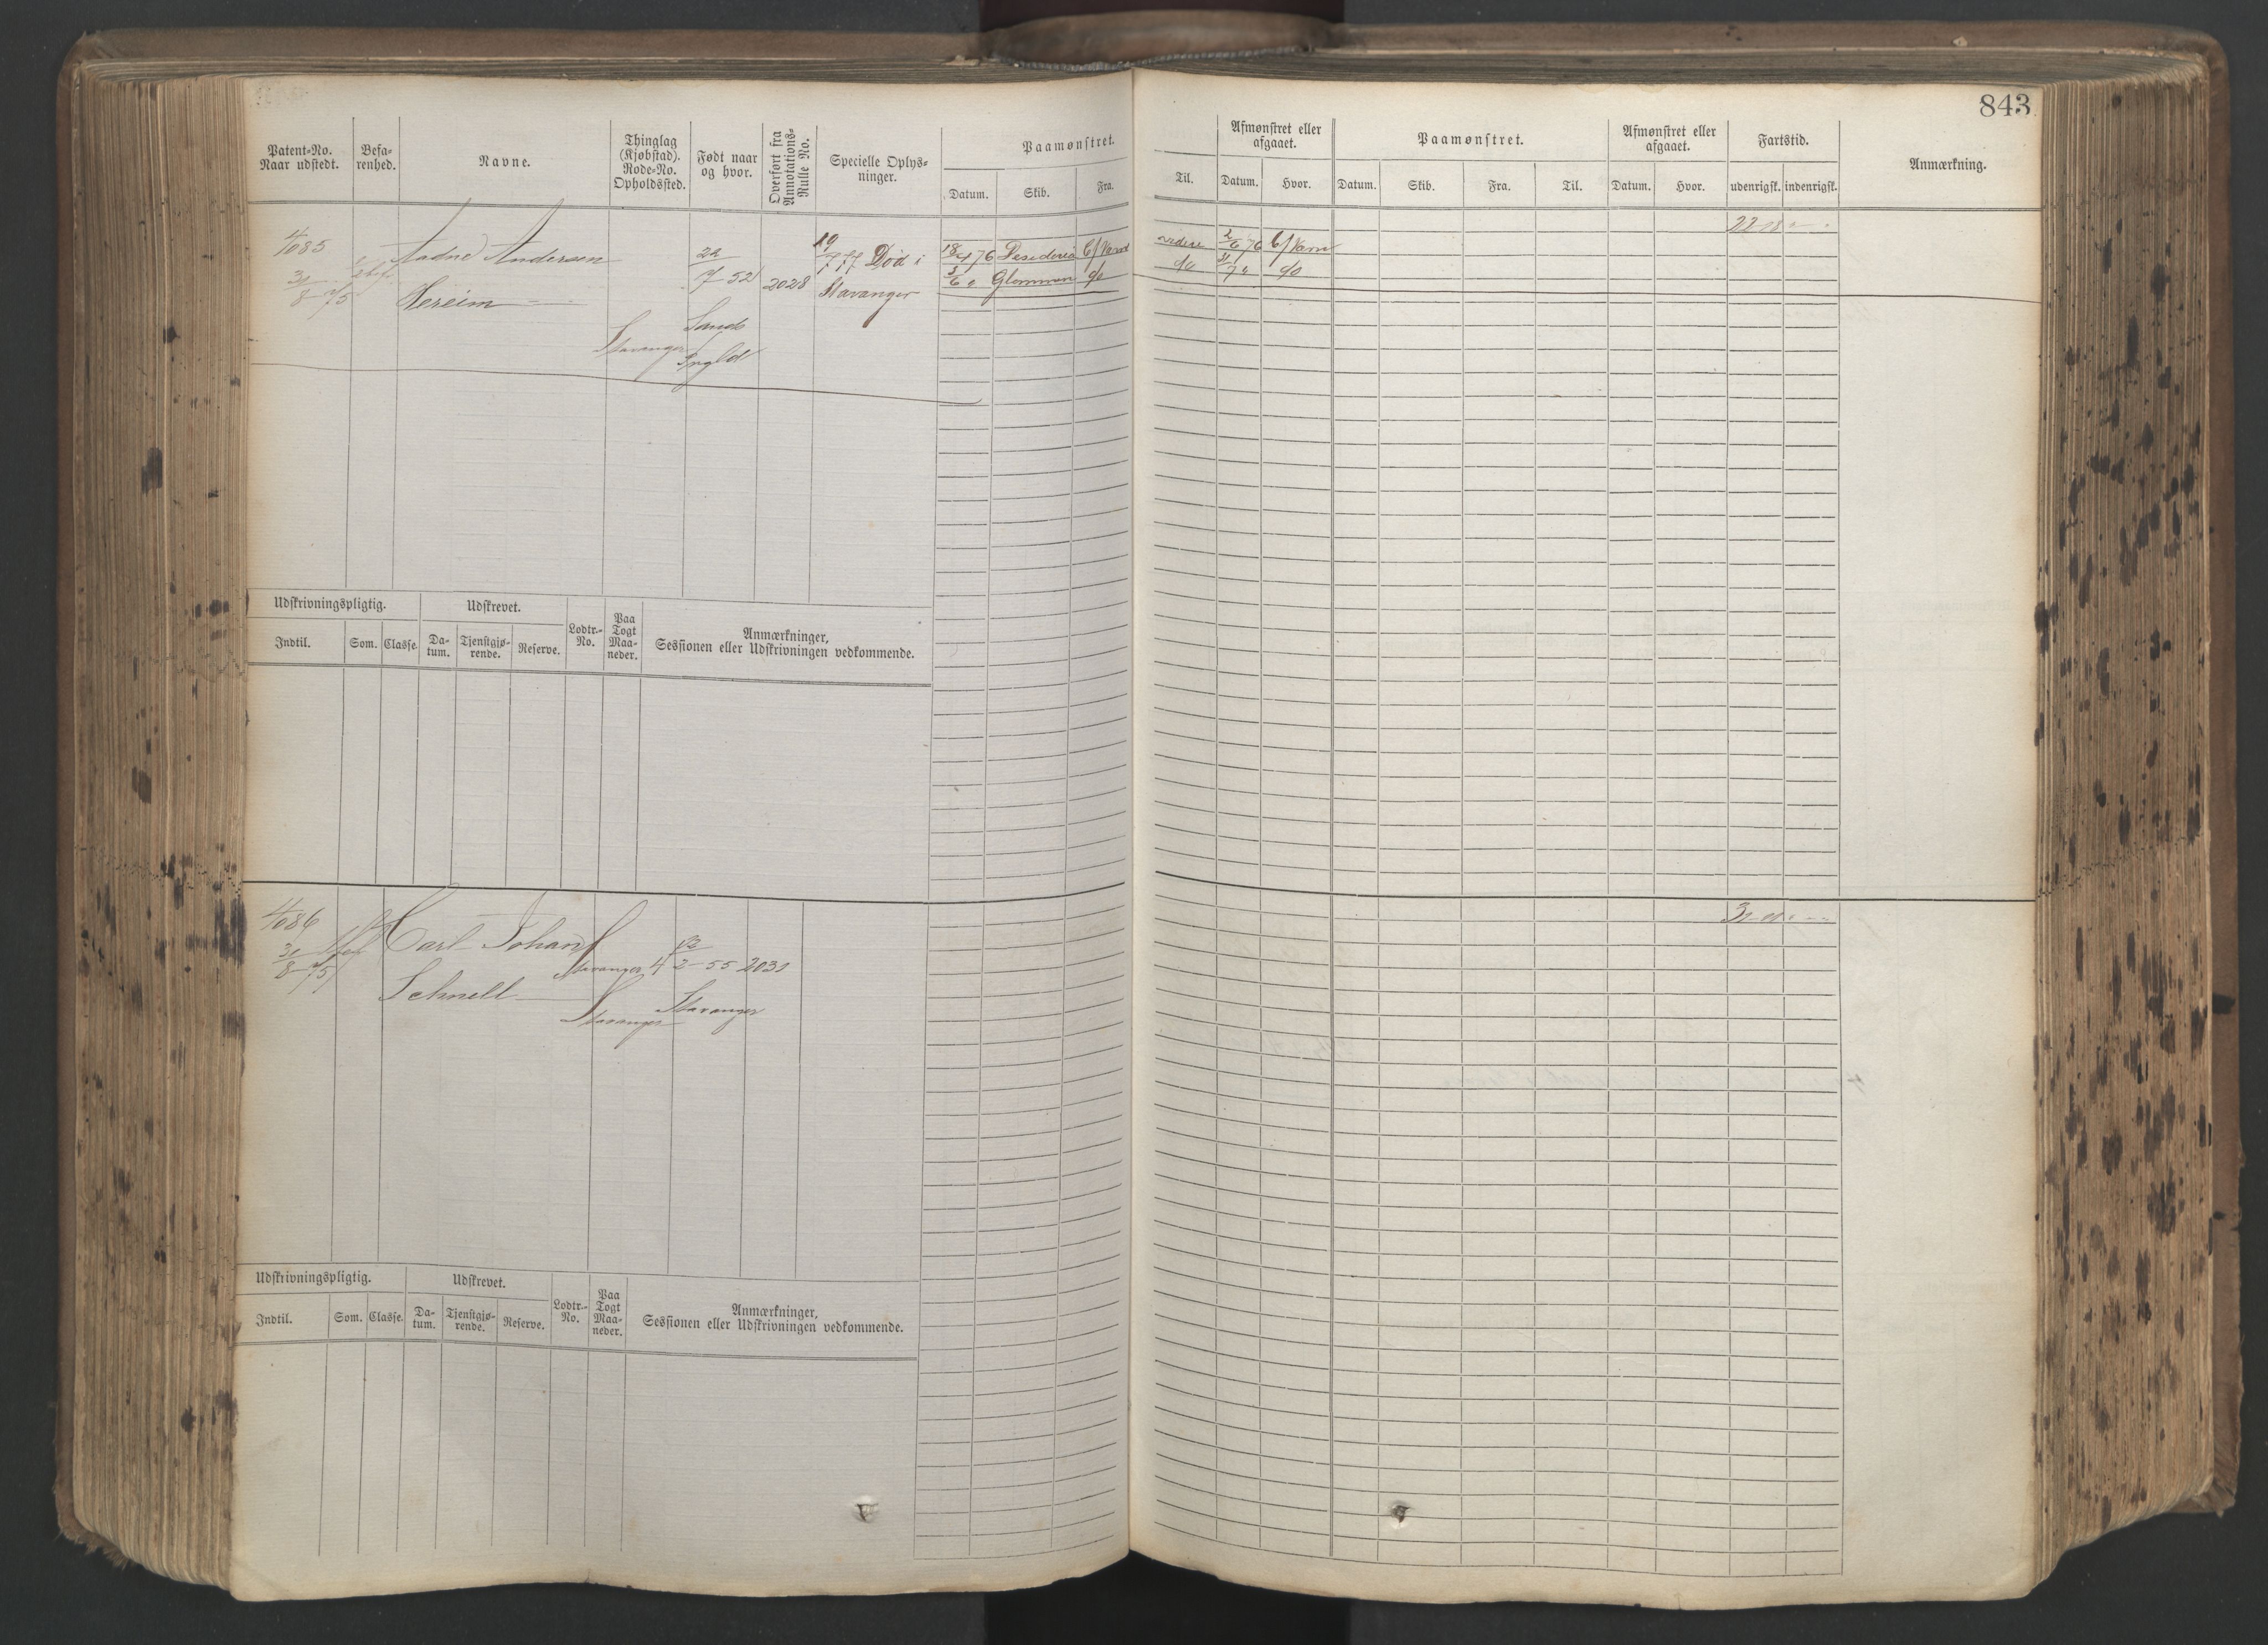 843
Patent-No. Naar udstedt.
Befarenhed.
Navne.
Thinglag (Kjøbstad). Rode-No. Opholdssted.
Født naar og hvor.
Overført fra Annotations-Rulle No.
Specielle Oplysninger.
Paamønstret.
Datum. Skib. Fra.
Til.
Afmønstret eller afgaaet.
Datum. Hvor.
Paamønstret.
Datum. Skib. Fra. Til.
Afmønstret eller afgaaet.
Datum. Hvor.
Fartstid.
udenrigsk. indenrigsk.
Anmærkning.
4085
31/8 75
Aadne Andersen
Hereim
Stavanger
22/7 52
Sands
2028
19/7 77 Død i
Stavanger
18/4 76 Desideria
Glommen do
videre
do
do
22
Udskrivningspligtig.
Indtil. Som. Classe.
Udskrevet.
Datum. Tjenstgjørende. Reserve.
Lodtr.-No.
Paa Togt Maaneder.
Anmærkninger,
Sessionen eller Udskrivningen vedkommende.
4086
31/8 75
Carl Johan
Schnell
Stavanger 4
Stavanger
2-55
Stavanger
2031
Udskrivningspligtig.
Indtil. Som. Classe.
Udskrevet.
Datum. Tjenstgjørende. Reserve.
Lodtr.-No.
Paa Togt Maaneder.
Anmærkninger,
Sessionen eller Udskrivningen vedkommende.